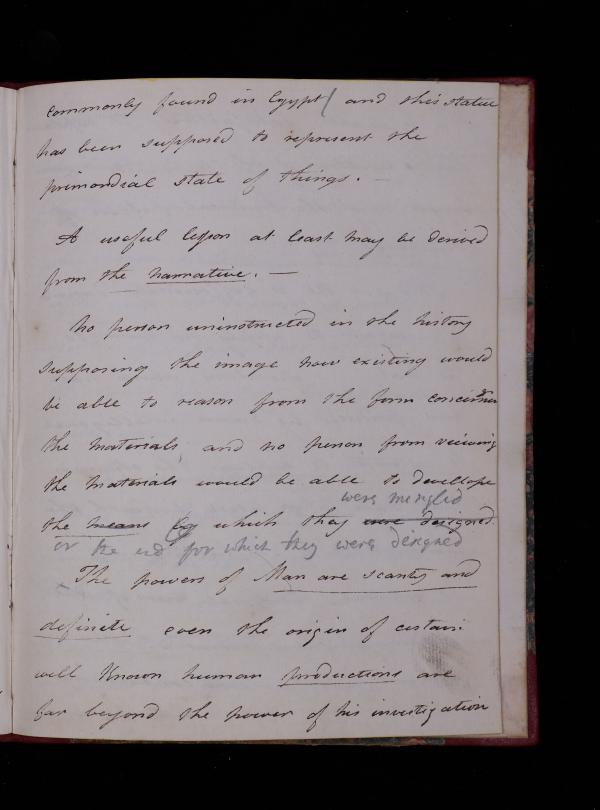 commonly found in Egypt and this statue
has been supposed to represent the
primordial state of things. —
A useful lesson at least may be derived
from the narrative. —
No person uninstructed in the history
supposing the image now existing would
be able to reason from the form concerning
the materials and no person from viewing
the materials would be able to develope
were mingled
the means by which they were designed.
or the end for which they were designed
The powers of Man are scanty and
definite even the origin of certain
well known human productions are
far beyond the power of his investigation